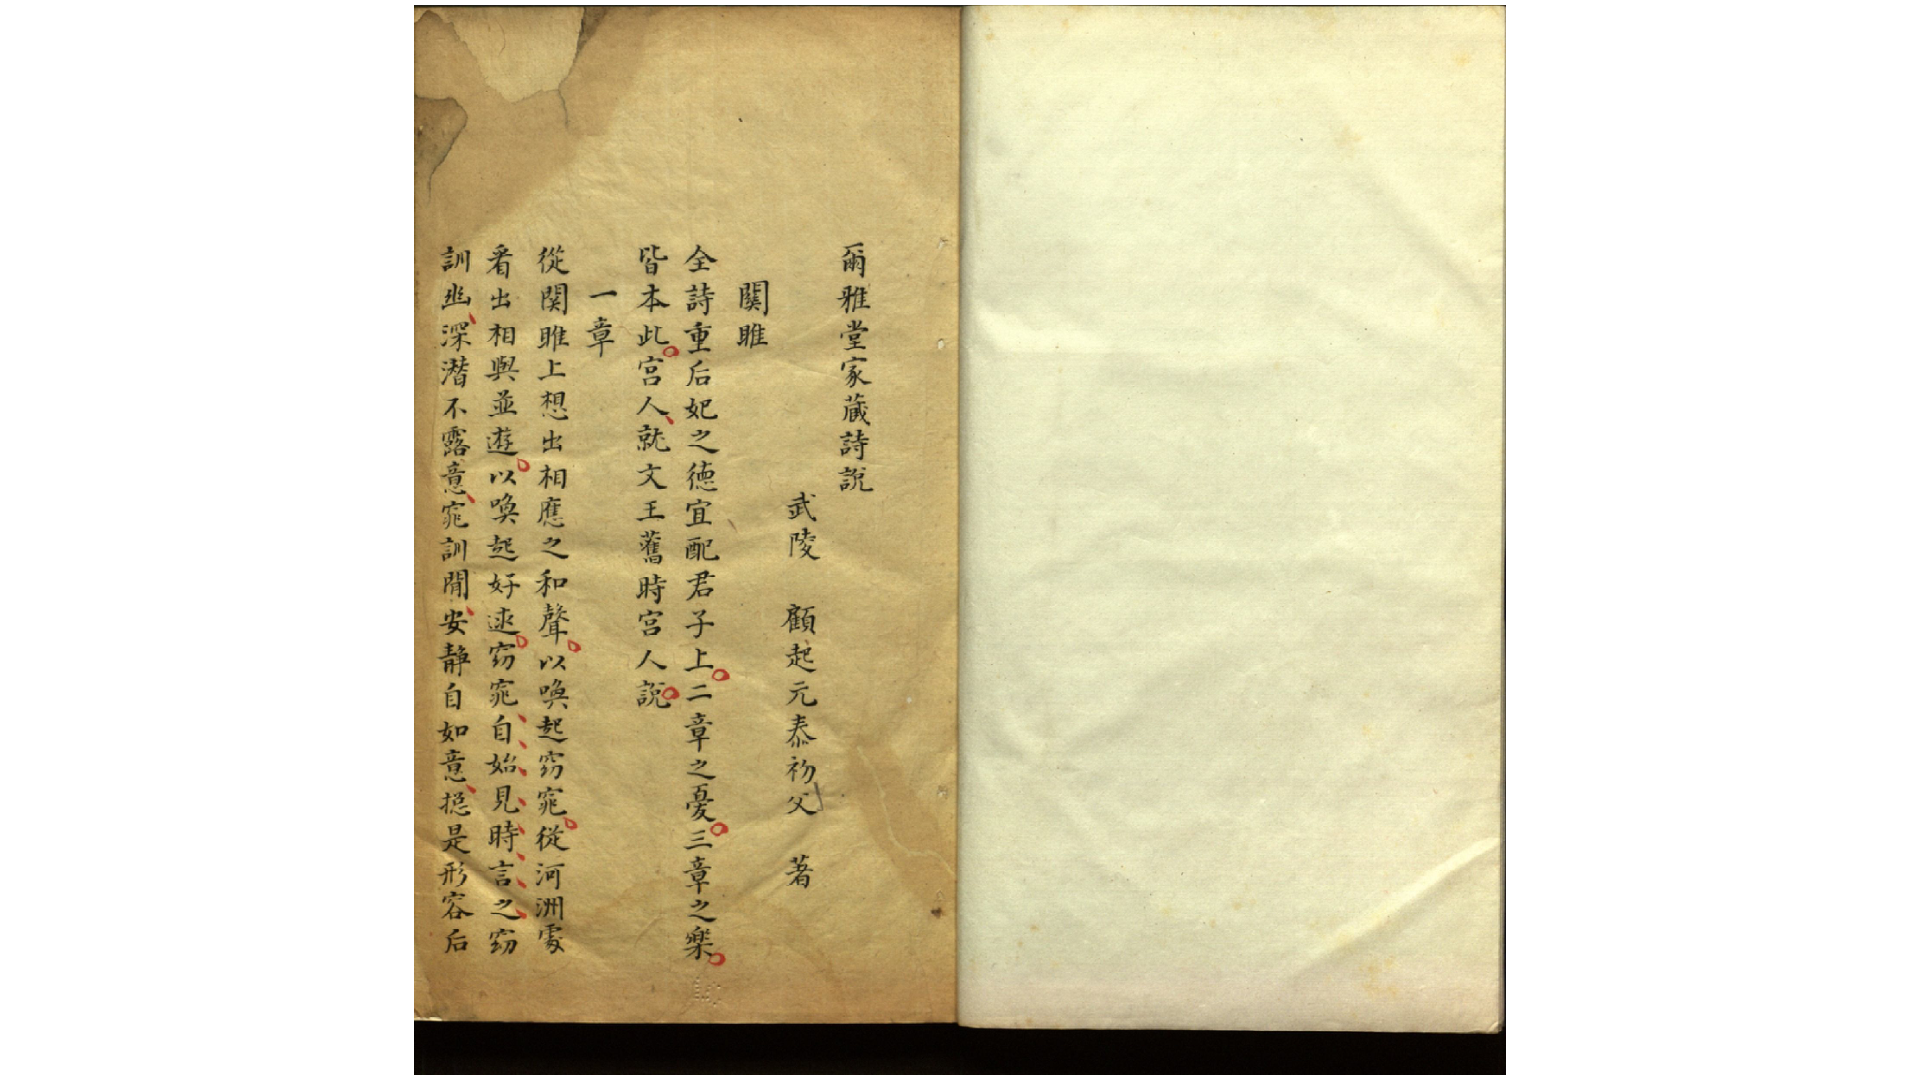 爾雅堂家蔵詩説
武陵　顧起元泰初父　著
関雎
全詩重后妃之德宜配君子上二章之憂三章之楽
皆本此宫人就文王舊時宫人說
一章
從関雎上想出相應之和聲以喚起窈窕從河洲䖏
看出相與並遊以喚起好逑窈窕自始見時言之窈
訓幽深潜不露意窕訓閒安静自如意揔是形容后